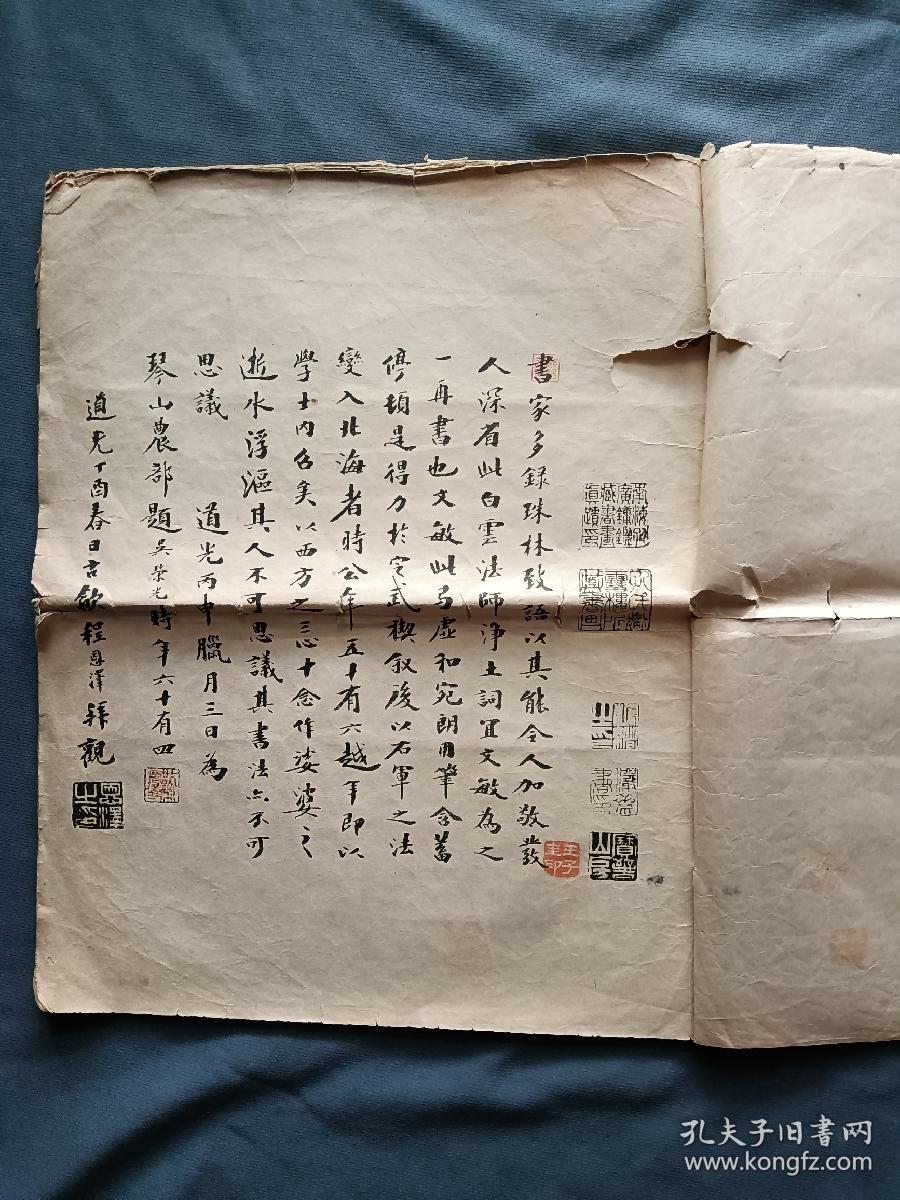 書家多錄珠林致語以其能令人加敬發
人深省此白雲法師淨土詞宜文敏為之
一再書也文敏此弓虛和宛朗用筆含蓄
停頓是得力於定武禊敘後以右軍之法
變入北海者時公年五十有六越年即以
學士內召矣以西方之三心十念作婆娑之
逝水浮漚其人不可思議其書法亦不可
思議 道光丙申臘月三日為
琴山農部題吳榮光時年六十有四
道光丁酉春日古歙程恩澤拜觀
恩澤之印
孔夫子旧书网
www.kongfz.com